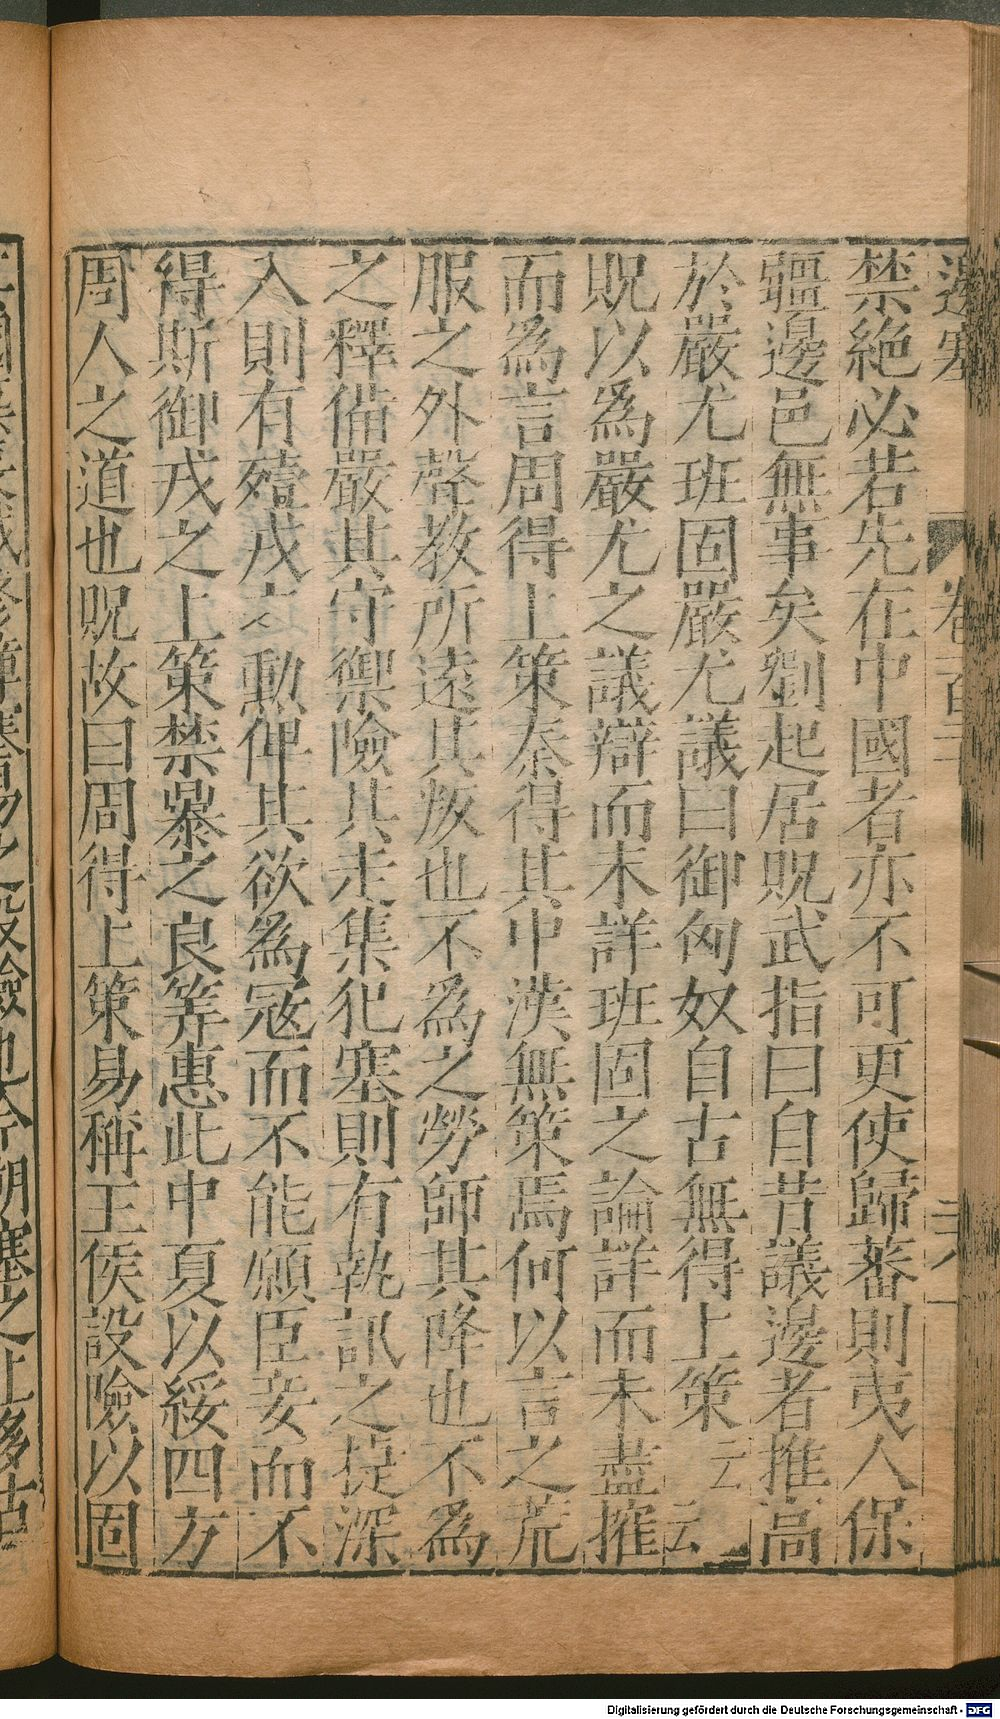 邊塞 卷百三十 三六
禁絶必若先在中國者亦不可更使歸蕃則夷人保
疆邊邑無事矣劉起居貺武指曰自昔議邊者推高
於嚴尤班固嚴尤議曰御匈奴自古無得上策云云
貺以爲嚴尤之議辯而未詳班固之論詳而未盡搉
而爲言周得上策秦得其中漢無策焉何以言之荒
服之外聲教所遠其叛也不爲之勞師其降也不爲
之釋備嚴其守禦險其走集犯塞則有執訊之捷深
入則有殪戎之勳俾其欲爲寇而不能願臣妾而不
得斯御戎之上策禁暴之良筭惠此中夏以綏四方
周人之道也貺故曰周得上策易稱王侯設險以固
Digitalisierung gefördert durch die Deutsche Forschungsgemeinschaft - DFG